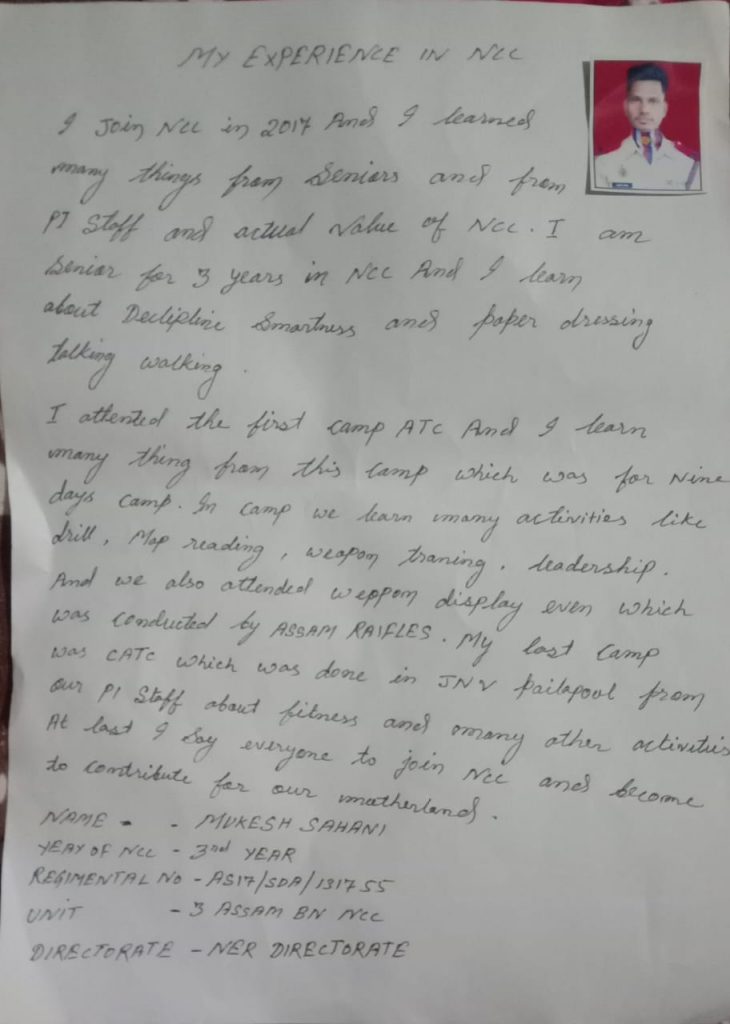 MY EXPERIENCE IN NCC
I Join NCC in 2017 And I learned
many things from Seniors and from
PI Staff and actual value of NCC. I am
Senior for 3 years in NCC And I learn
about Declipline Smartness and paper dressing
talking walking.
I attented the first camp ATC And I learn
many thing from this camp which was for Nine
days camp. In camp we learn many activities like
drill, Map reading, weapon traning, leadership.
And we also attended weppon display even which
was conducted by ASSAM RAIFLES. My last camp
was CATC which was done in JNV Pailapool from
our PI Staff about fitness and many other activities
At last I Say everyone to join NCC and become
to contribute for our motherland.
NAME - - MUKESH SAHANI
YEAY OF NCC - 3rd YEAR
REGIMENTAL NO - AS17/SDA/131755
UNIT - 3 ASSAM BN NCC
DIRECTORATE - NER DIRECTORATE